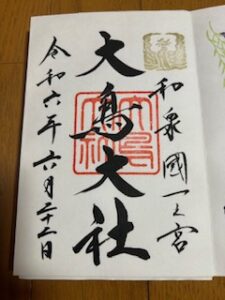 和泉國一之宮
大鳥大社
令和六年六月二十二日